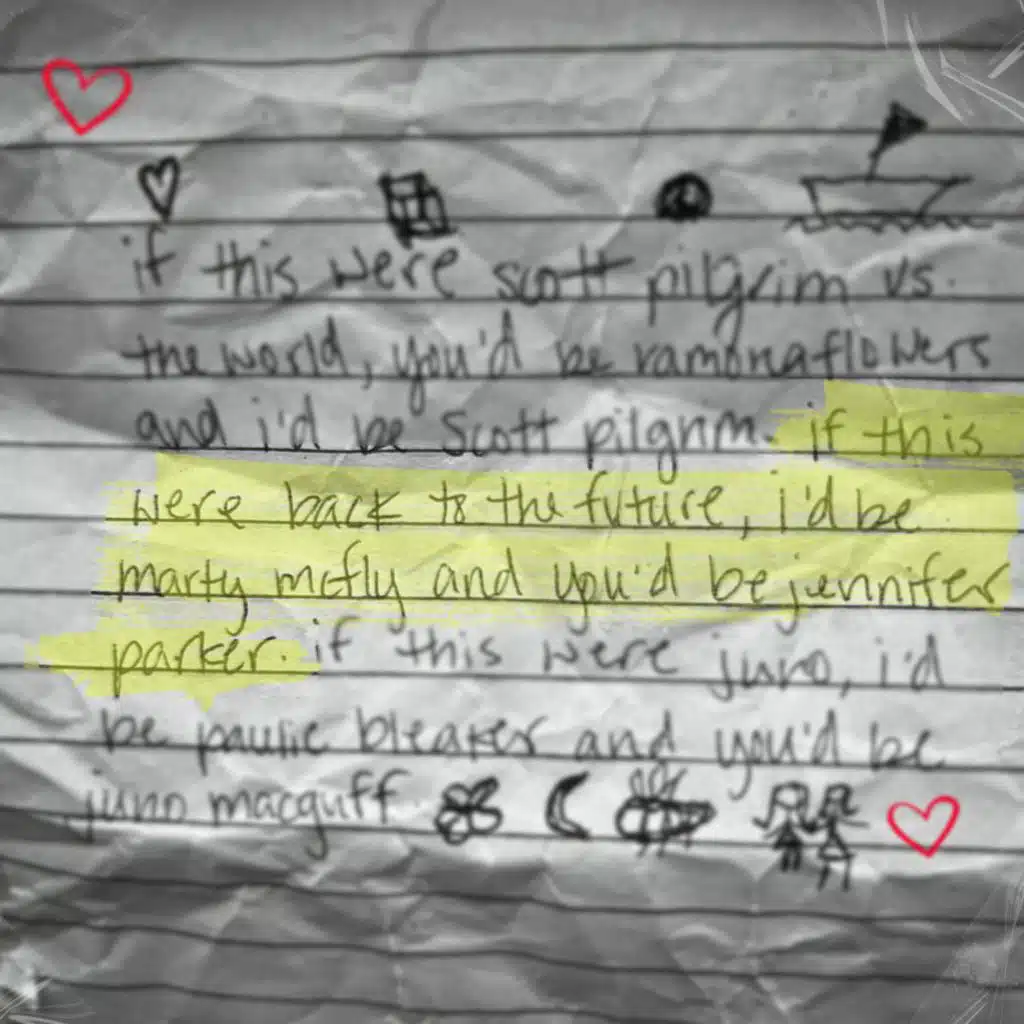 if this were scott pilgrim vs.
the world, you'd be ramona flowers
and i'd be scott pilgrim. if this
were back to the future, i'd be
marty mcfly and you'd be jennifer
parker. if this were juno, i'd
be paulie bleaker and you'd be
juno macguff